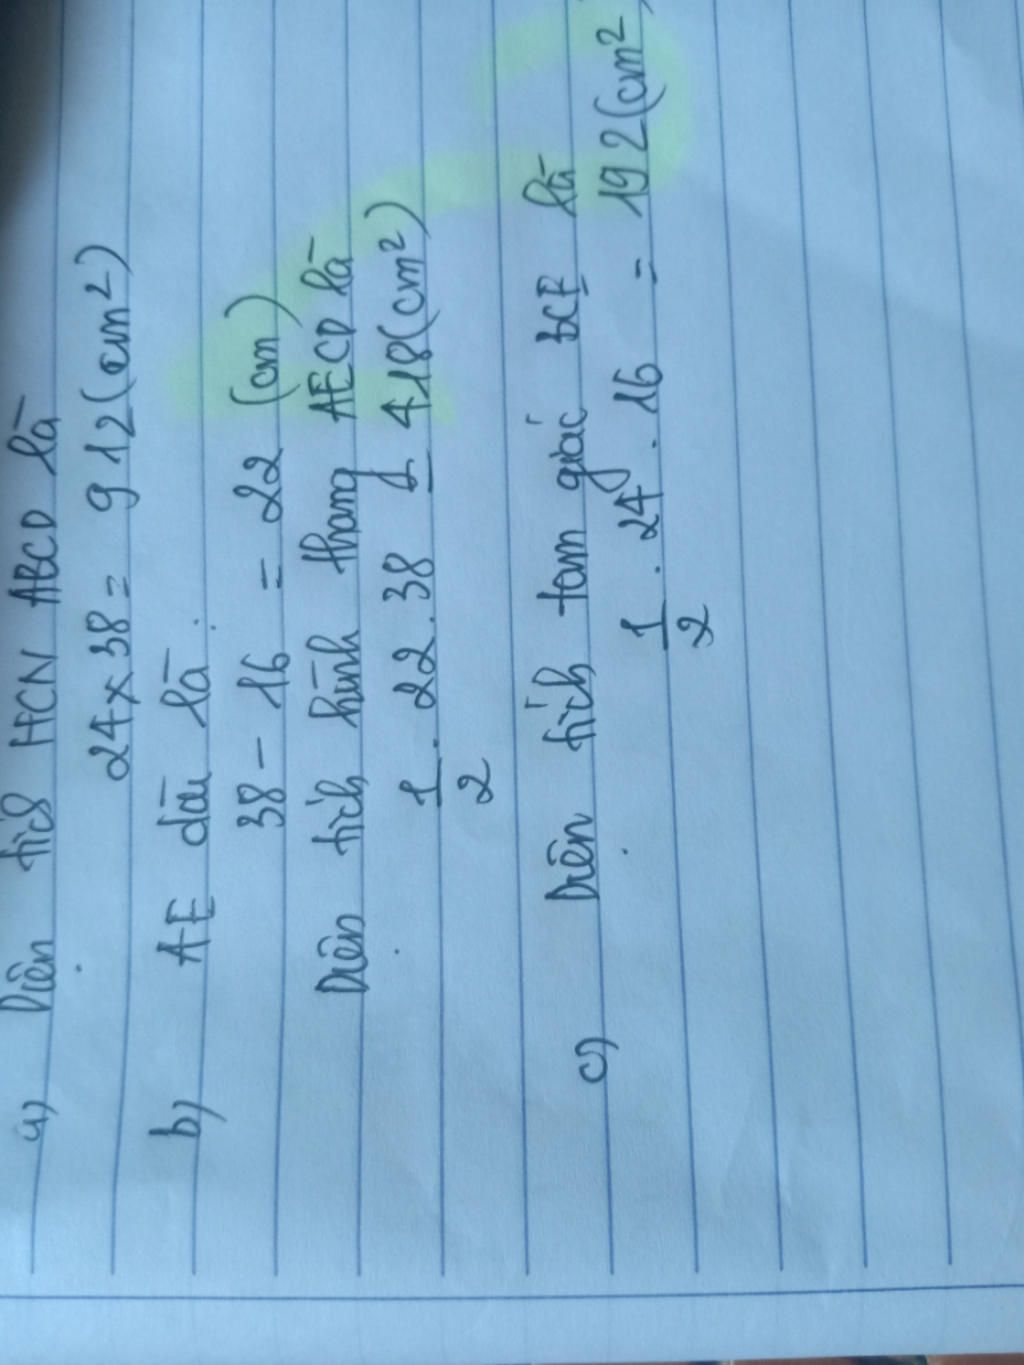 a) Diện tích HCN ABCD là
24 × 38 = 912 (cm²)
b) AE dài là
38 - 16 = 22 (cm)
Diện tích hình thang AECD là
1/2 . 22 . 38 = 418 (cm²)
c) Diện tích tam giác BCE là
1/2 . 24 . 16 = 192 (cm²